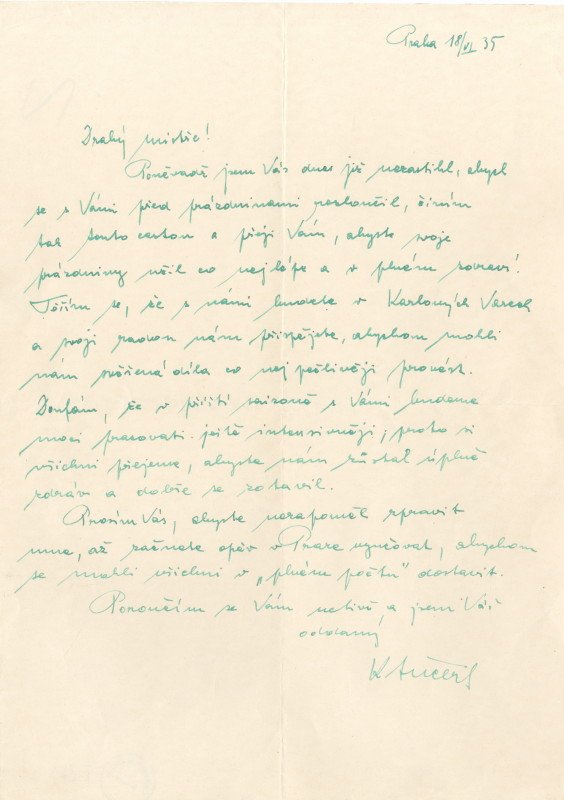 Praha 18/VI 35
Drahý mistře!
Poněvadž jsem Vás dnes již nezastihl, abych
se s Vámi před prázdninami rozloučil, činím
tak touto cestou a přeji Vám, abyste svoje
prázdniny užil co nejlépe a v plném zdraví.
Těším se, že s námi budete v Karlových Varech
a svojí radou nám přispějete, abychom mohli
nám svěřená díla co nejpečlivěji provést.
Doufám, že v příští saisoně s Vámi budeme
moci pracovati ještě intensivněji; proto si
všichni přejeme, abyste nám zůstal úplně
zdráv a dobře se zotavil.
Prosím Vás, abyste nezapoměl zpravit
mne, až začnete opět v Praze vyučovat, abychom
se mohli všichni v „plném počtu" dostavit.
Poroučím se Vám uctivě a jsem Váš
oddaný
K Ančerl